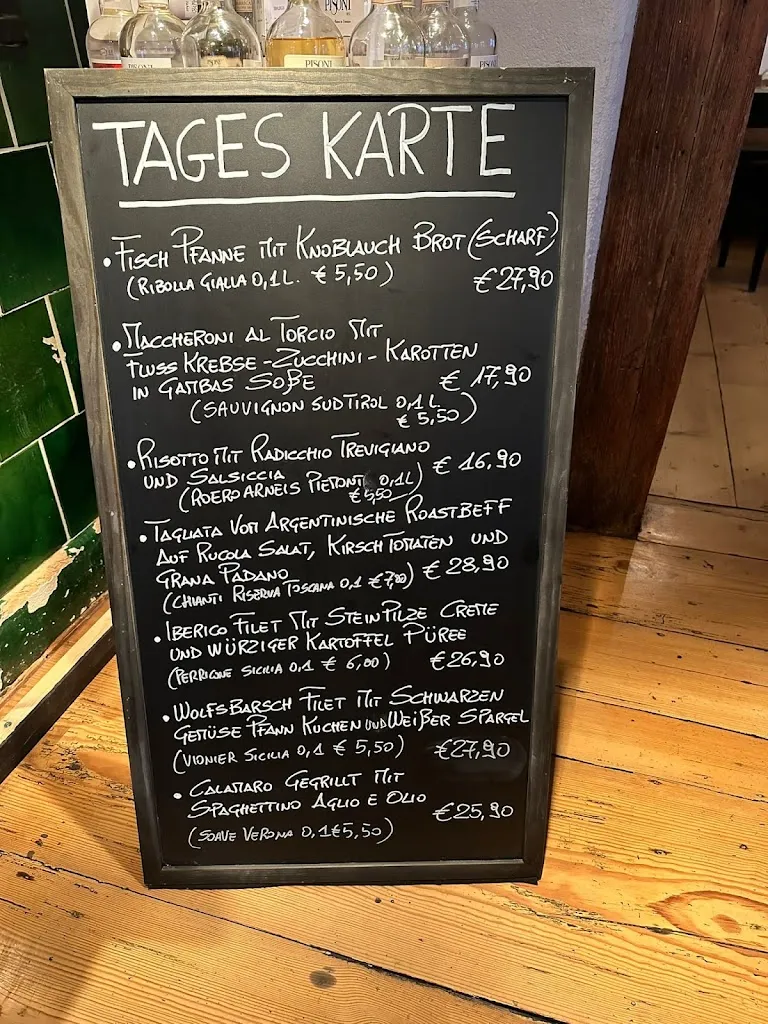 PISONI
PISONI
PISONI
TAGES KARTE
• FISCH PFANNE MIT KNOBLAUCH BROT (SCHARF)
(RIBOLLA GIALLA 0,1L. € 5,50) € 27,90
• MACCHERONI AL TORCIO MIT
FLUSS KREBSE - ZUCCHINI - KAROTTEN
IN GAMBAS SOßE € 17,90
(SAUVIGNON SUDTIROL 0,1 L
€ 5,50)
• RISOTTO MIT RADICCHIO TREVIGIANO
UND SALSICCIA € 16,90
(ROERO ARNEIS PIEMONT 0,1L)
€ 5,50
• TAGLIATA VOM ARGENTINISCHE ROASTBEFF
AUF RUCOLA SALAT, KIRSCH TOMATEN UND
GRANA PADANO € 28,90
(CHIANTI RISERVA TOSCANA 0,1 €7,80)
• IBERICO FILET MIT STEINPILZE CREME
UND WÜRZIGER KARTOFFEL PÜREE
(PERRICONE SICILIA 0,1 € 6,00) € 26,90
• WOLFSBARSCH FILET MIT SCHWARZEN
GEMÜSE PFANN KUCHEN UND WEIßER SPARGEL
(VIONIER SICILIA 0,1 € 5,50) € 27,90
• CALAMARO GEGRILLT MIT
SPAGHETTINO AGLIO E OLIO € 25,90
(SOAVE VERONA 0,1 € 5,50)